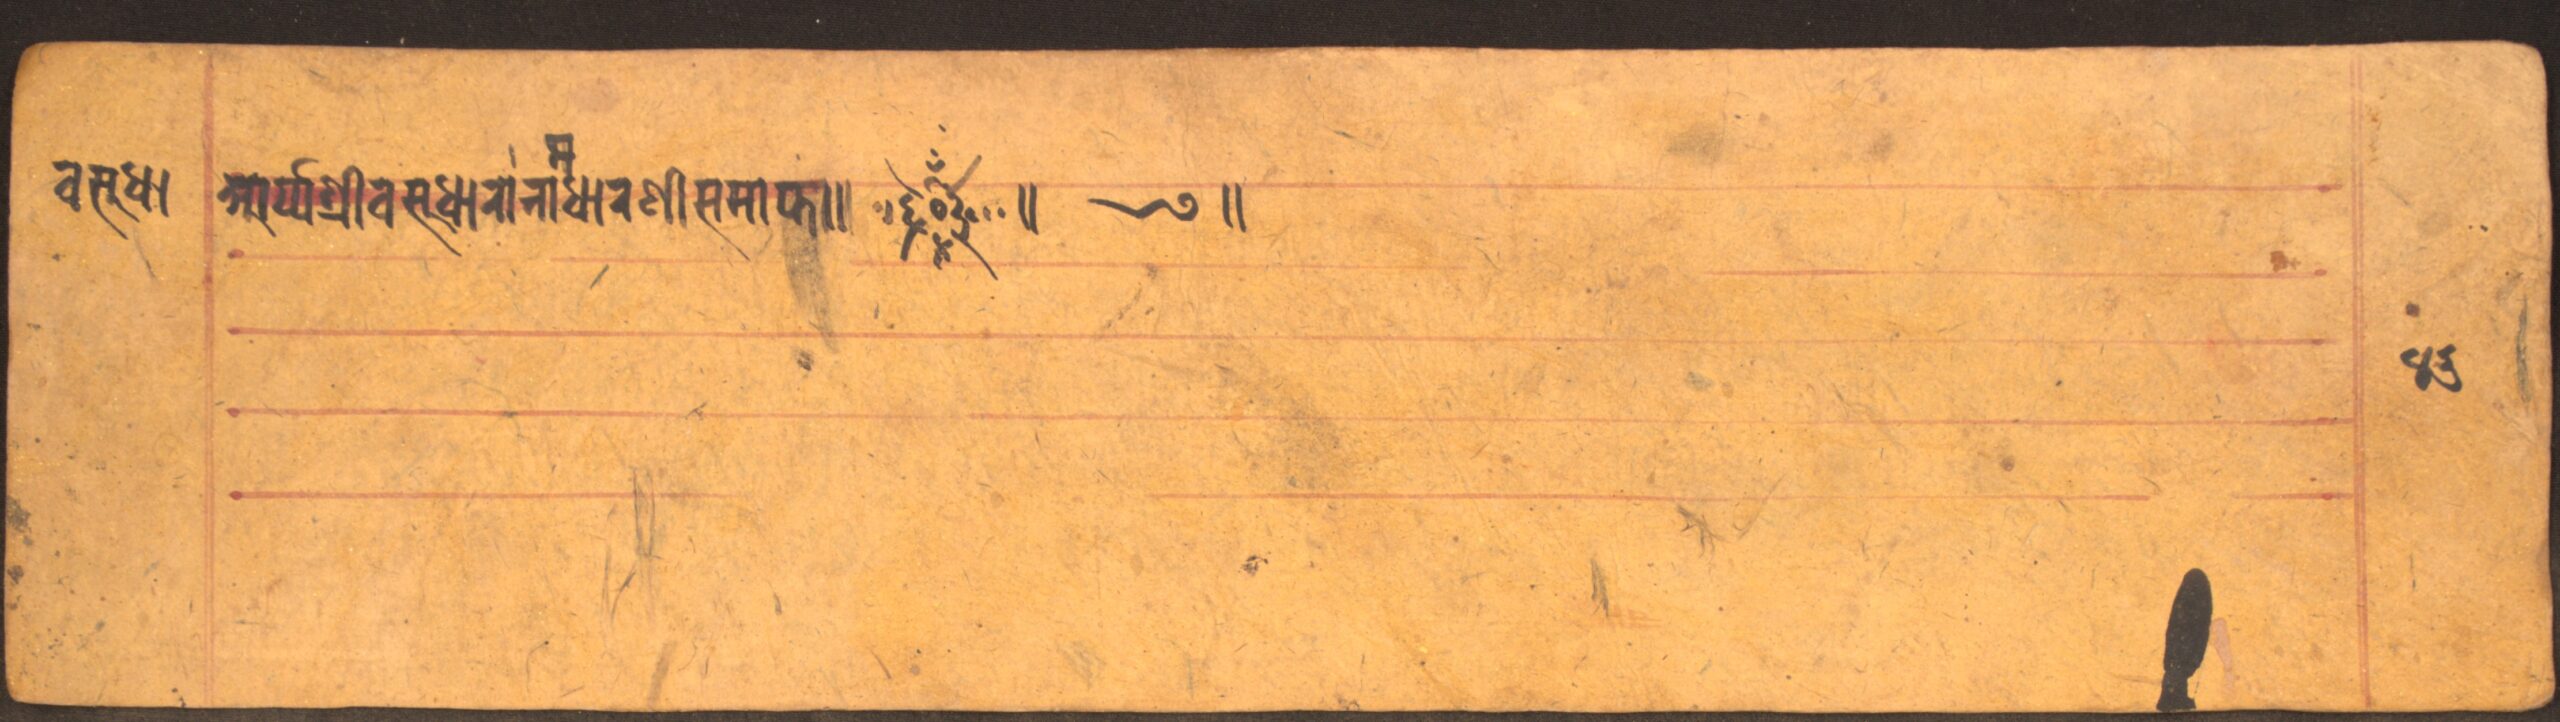 वसुधा
आर्य्यश्रीवसुधारानामधारणीसमाप्त॥ ॥ ॥
४३